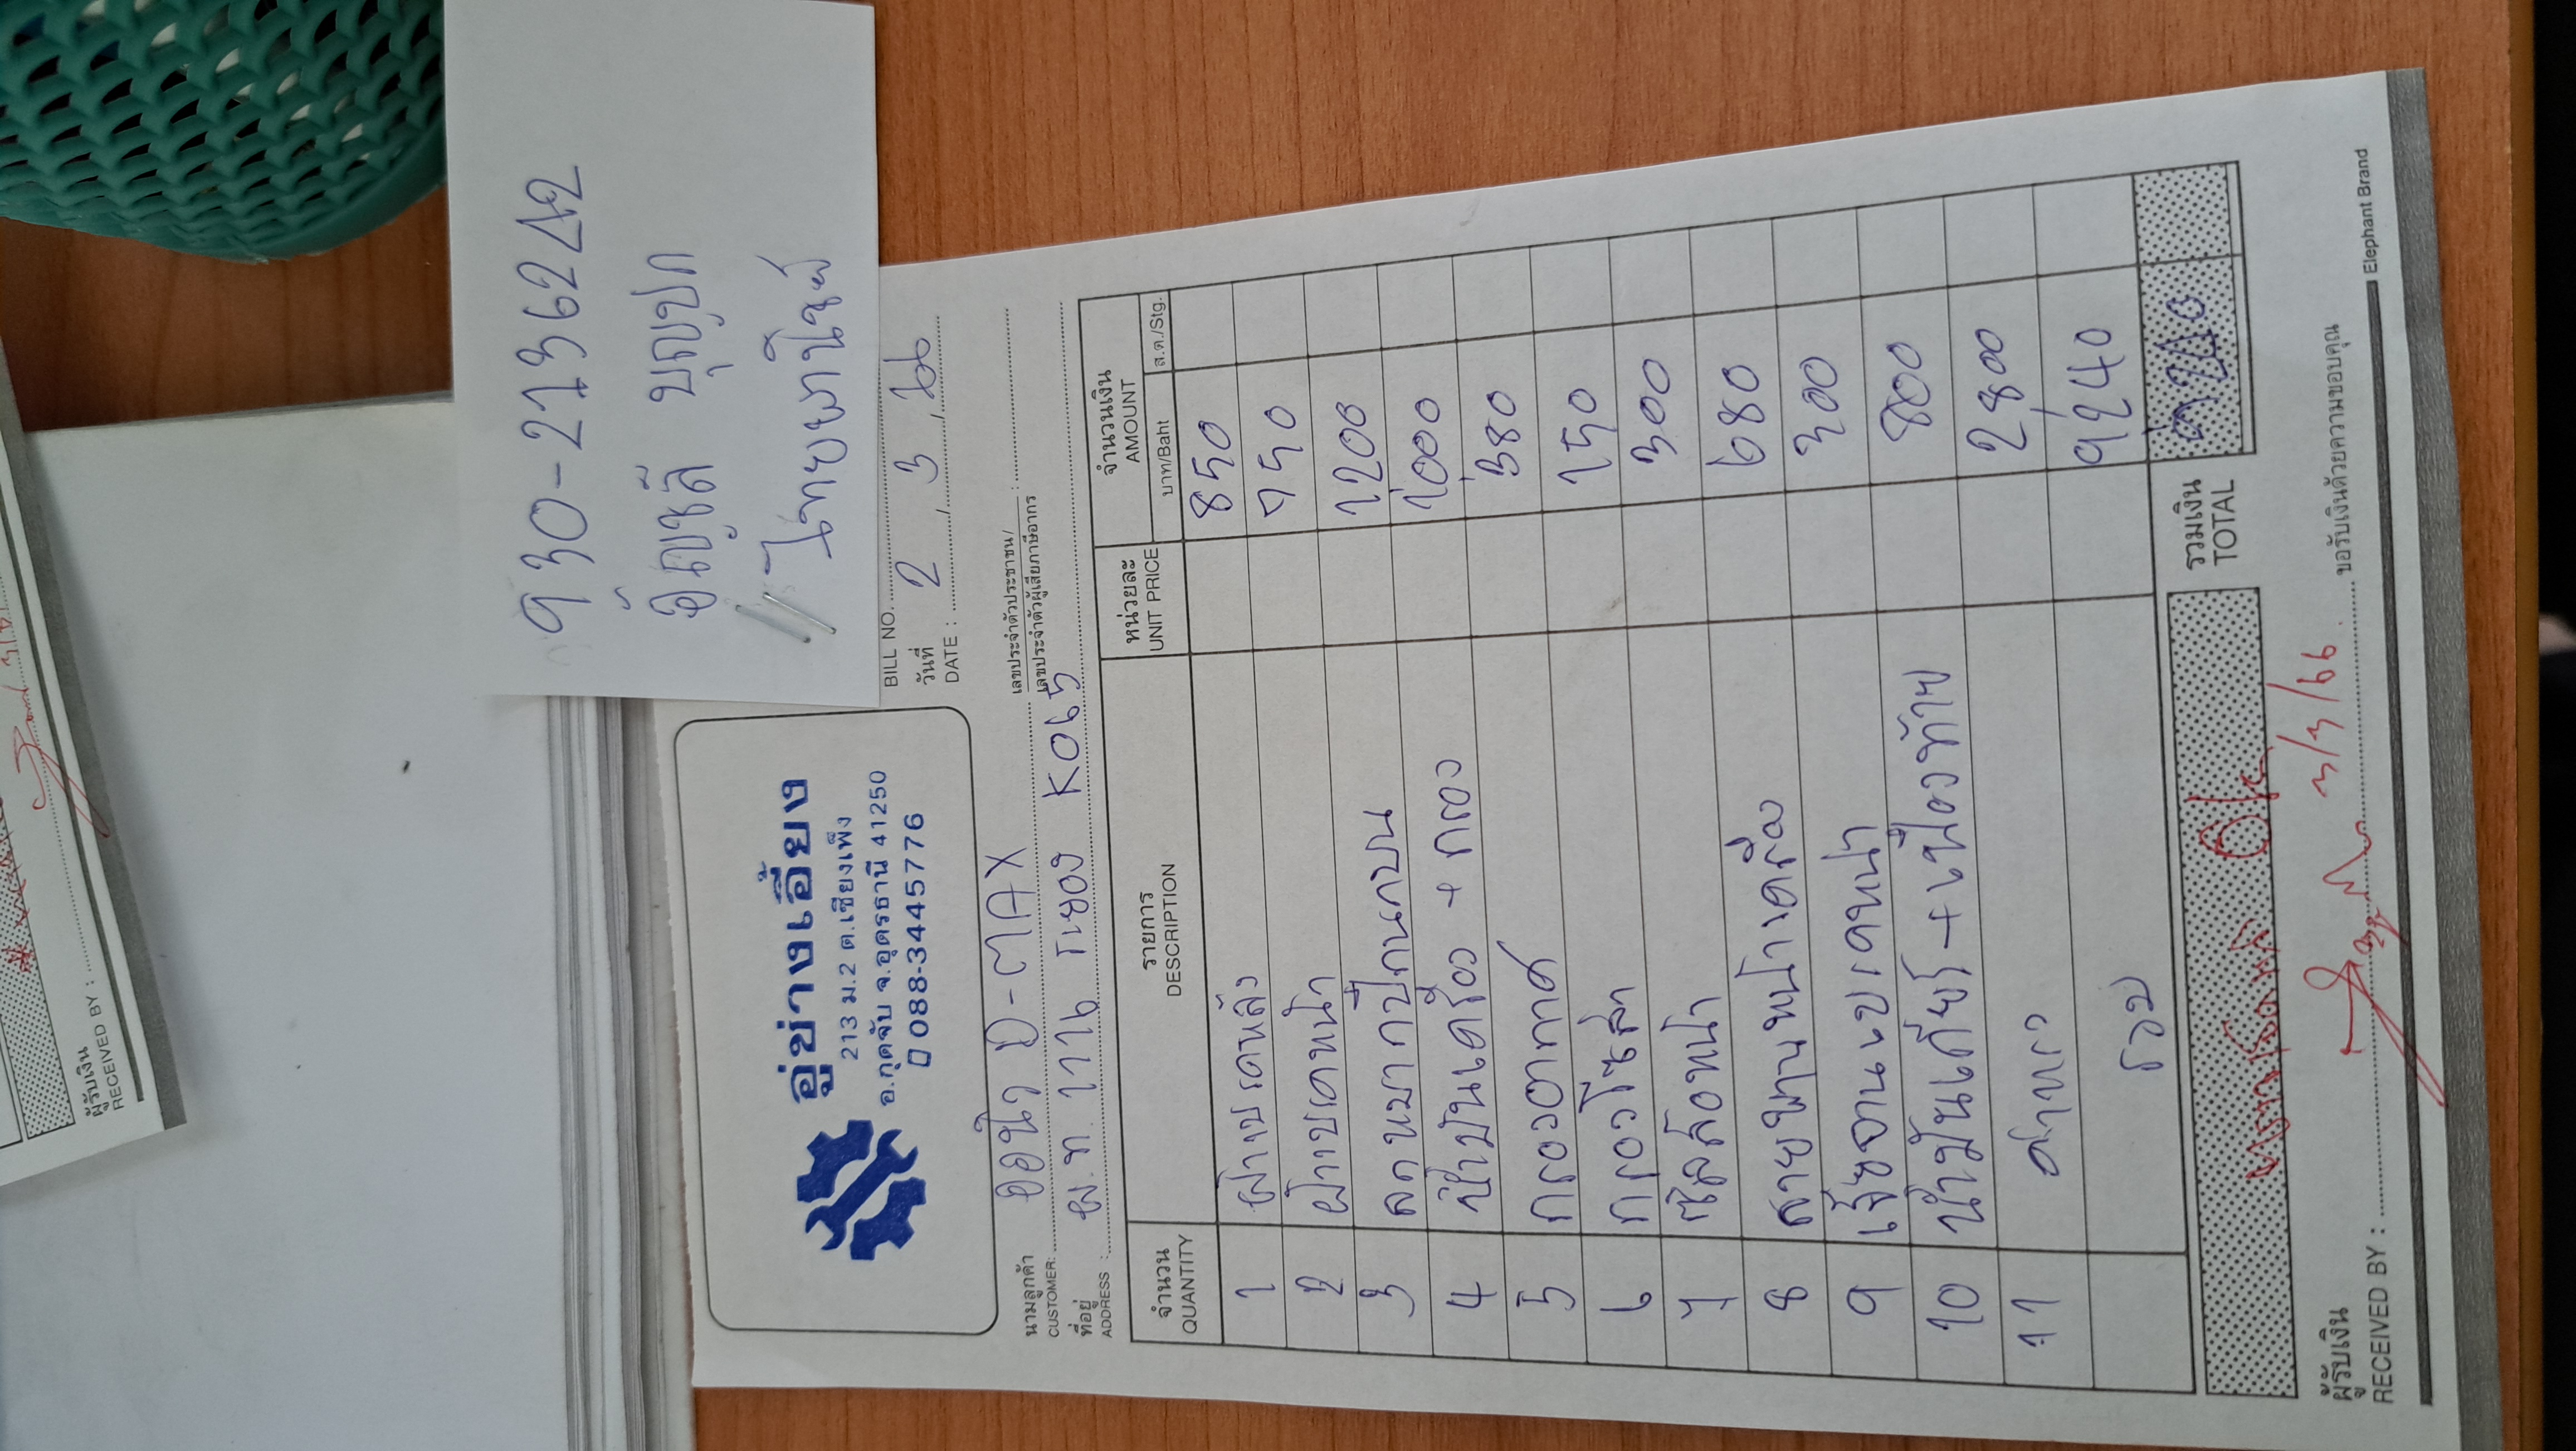 930-2136242
อัญชลี บุญปก
ไทยพาณิชย์
อู่ช่างเอี้ยง
213 ม.2 ต.เชียงเพ็ง
อ.กุดจับ จ.อุดรธานี 41250
088-3445776
BILL NO.
วันที่
DATE : 2 / 3 / 66
นามลูกค้า
CUSTOMER: D-MAX
เลขประจำตัวประชาชน/
เลขประจำตัวผู้เสียภาษีอากร :
ที่อยู่
ADDRESS : ผ.ท. 1776 ระยอง K065
จำนวน QUANTITY รายการ DESCRIPTION หน่วยละ UNIT PRICE จำนวนเงิน AMOUNT
บาท/Baht ส.ต./Stg.
1 ผ้าเบรคหลัง 850
2 ผ้าเบรคหน้า 750
3 ลูกหมากปีกนกบน 1200
4 น้ำมันเครื่อง + กรอง 1000
5 กรองอากาศ 380
6 กรองโซล่า 150
7 ซีลล้อหน้า 300
8 สายพานหน้าเครื่อง 680
9 เจียจานเบรคหน้า 300
10 น้ำมันเกียร์ + เฟืองท้าย 800
11 ค่าแรง 2,800
รวม 9,240
รวมเงิน
TOTAL 9,240
OK
3/3/66
ผู้รับเงิน
RECEIVED BY : ขอรับเงินด้วยความขอบคุณ
Elephant Brand
ผู้รับเงิน
RECEIVED BY :